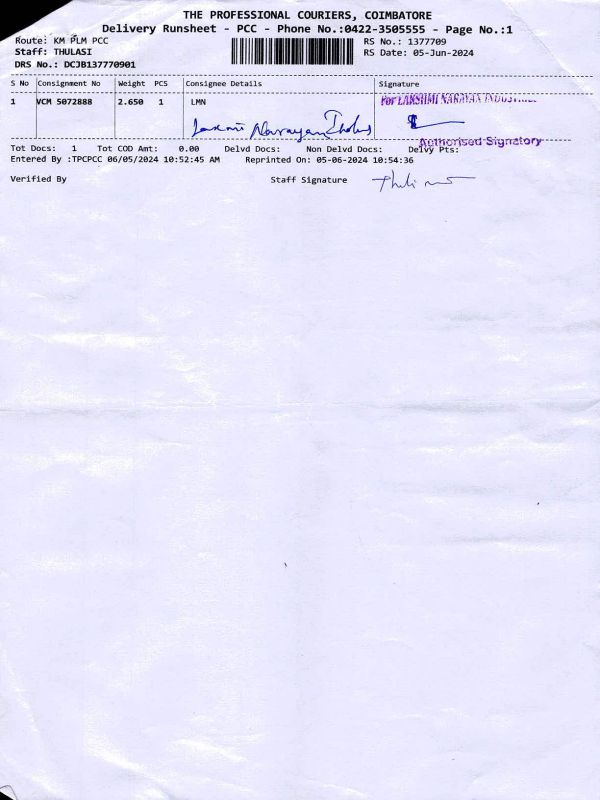 THE PROFESSIONAL COURIERS, COIMBATORE
Delivery Runsheet - PCC - Phone No.:0422-3505555 - Page No.:1
Route: KM PLM PCC
RS No.: 1377709
Staff: THULASI
RS Date: 05-Jun-2024
DRS No.: DCJB137770901
S No Consignment No Weight PCS Consignee Details Signature
1 VCM 5072888 2.650 1 LMN
For LAKSHMI NARAYAN
Laxmi Narayan
Authorised Signatory
Tot Docs: 1 Tot COD Amt: 0.00 Delvd Docs: Non Delvd Docs: Delvy Pts:
Entered By :TPCPCC 06/05/2024 10:52:45 AM Reprinted On: 05-06-2024 10:54:36
Verified By Staff Signature